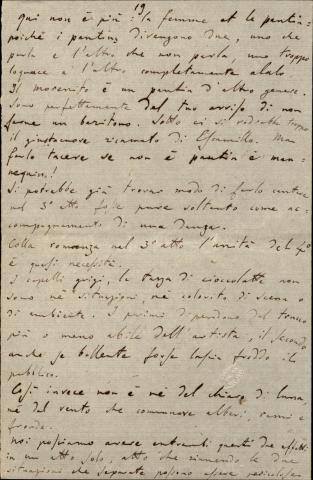 19
Qui non è più: "la femme et le pantin"
poichè i pantins divengono due, uno che
parla e l'altro che non parla, uno troppo
loquace e l'altro completamente alalo
Il morenito è un pantin d'altro genere.
Sono perfettamente del tuo avviso di non
farne un baritono. Sotto ci si vedrebbe troppo
il giustacuore ricamato di Escamillo. Ma
farlo tacere se non è pantin è man-
nequin!
Si potrebbe già trovar modo di farlo cantare
nel 3º atto pure soltanto come ac-
compagnamento di una danza.
Colla romanza nel 3º atto l'unità del 4º
è quasi necessità.
I capelli grigi, la tazza di cioccolatte non
sono nè situazioni, nè colorito di scena o
di ambiente. I primi dipendono dal trucco
più o meno abile dell'artista, il secondo
anche se bollente forse lascia freddo il
pubblico.
Così invece non è nè del chiaro di luna,
nè del vento che commuove alberi, rami e
fronde.
Noi possiamo avere entrambi questi due effetti
in un atto solo, atto che riunendo le due
situazioni che separate possono essere pericolose